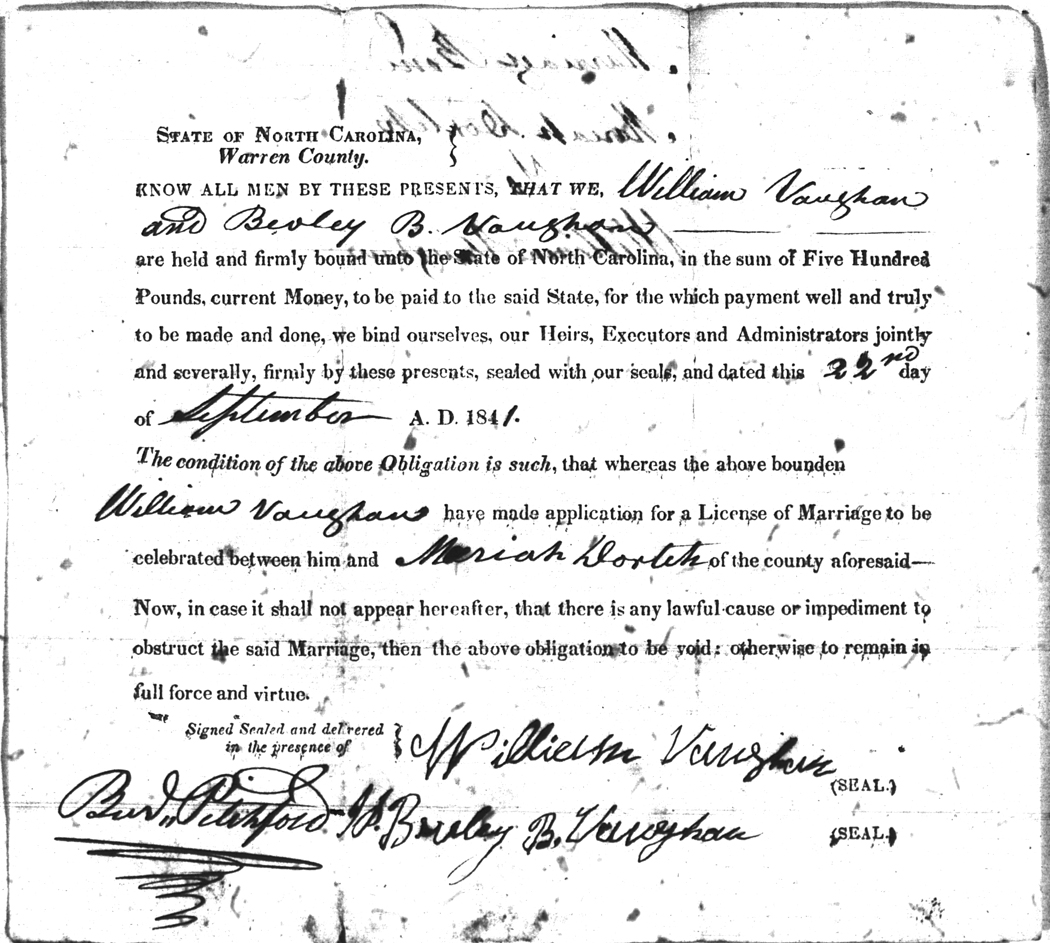 STATE OF NORTH CAROLINA, }
Warren County.
KNOW ALL MEN BY THESE PRESENTS, THAT WE, William Vaughan
and Bevley B. Vaughan
are held and firmly bound unto the State of North Carolina, in the sum of Five Hundred
Pounds, current Money, to be paid to the said State, for the which payment well and truly
to be made and done, we bind ourselves, our Heirs, Executors and Administrators jointly
and severally, firmly by these presents, sealed with our seals, and dated this 22nd day
of September A. D. 1841.
The condition of the above Obligation is such, that whereas the above bounden
William Vaughan have made application for a License of Marriage to be
celebrated between him and Meriah Dortch of the county aforesaid—
Now, in case it shall not appear hereafter, that there is any lawful cause or impediment to
obstruct the said Marriage, then the above obligation to be void: otherwise to remain in
full force and virtue.
Signed Sealed and delivered }
in the presence of
William Vaughan (SEAL.)
Pitchford Bevley B. Vaughan (SEAL.)